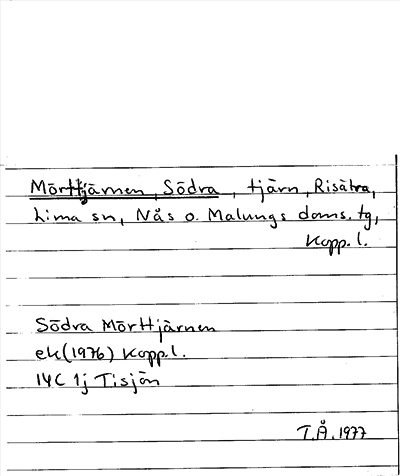 Mörttjärnen, Södra, tjärn, Risätra,
Lima sn, Nås o. Malungs doms. tg,
Kopp. l.
Södra Mörttjärnen
ek (1976) Kopp. l.
14C 1j Tisjön
T.Å. 1977